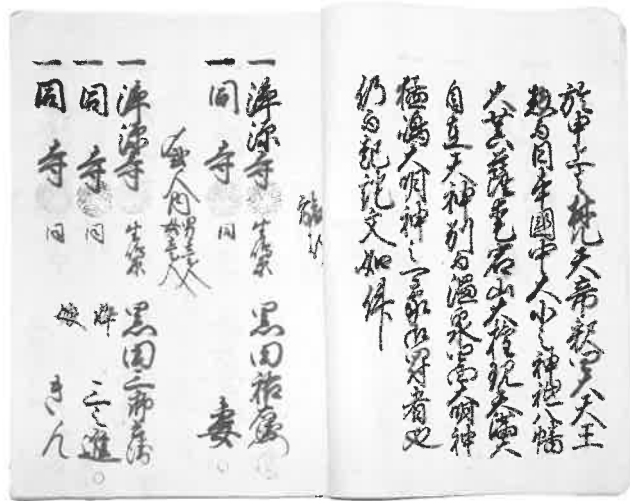 梵天帝釈四大天王
惣而日本国中大小之神祇八幡
大菩薩愛宕山大権現天満大
自在天神別而温泉四面大明神
猛嶋大明神之可蒙御罰者也
仍而起請文如件
一 浄源寺 黒田祐
一 同 寺 同 妻
人内 男壱人 女壱人
一 浄源寺 黒田三郎
一 同 寺 同 倅 三之進
一 同 寺 同 きん